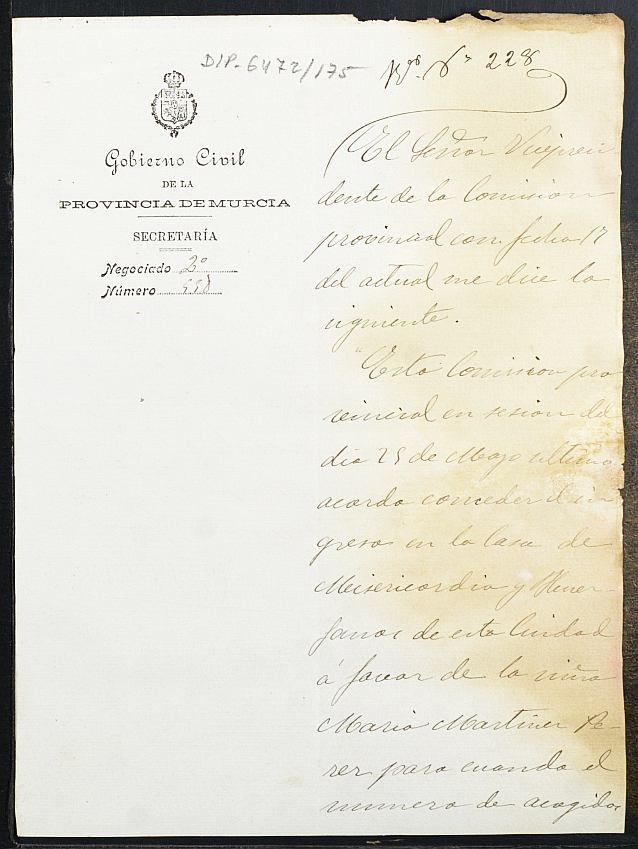 DIP-6472/175
228
Gobierno Civil
DE LA
PROVINCIA DE MURCIA
SECRETARÍA
Negociado 2º
Número 558
El Señor Vicepresi
dente de la Comision
provincial con fecha 17
del actual me dice lo
siguiente.
"Esta Comision pro
vincial en sesion del
dia 25 de Mayo ultimo
acordo conceder el in
greso en la Casa de
Misericordia y Huer-
fanos de esta Ciudad
á favor de la niña
Maria Martinez Pe-
rez para cuando el
numero de acogidos